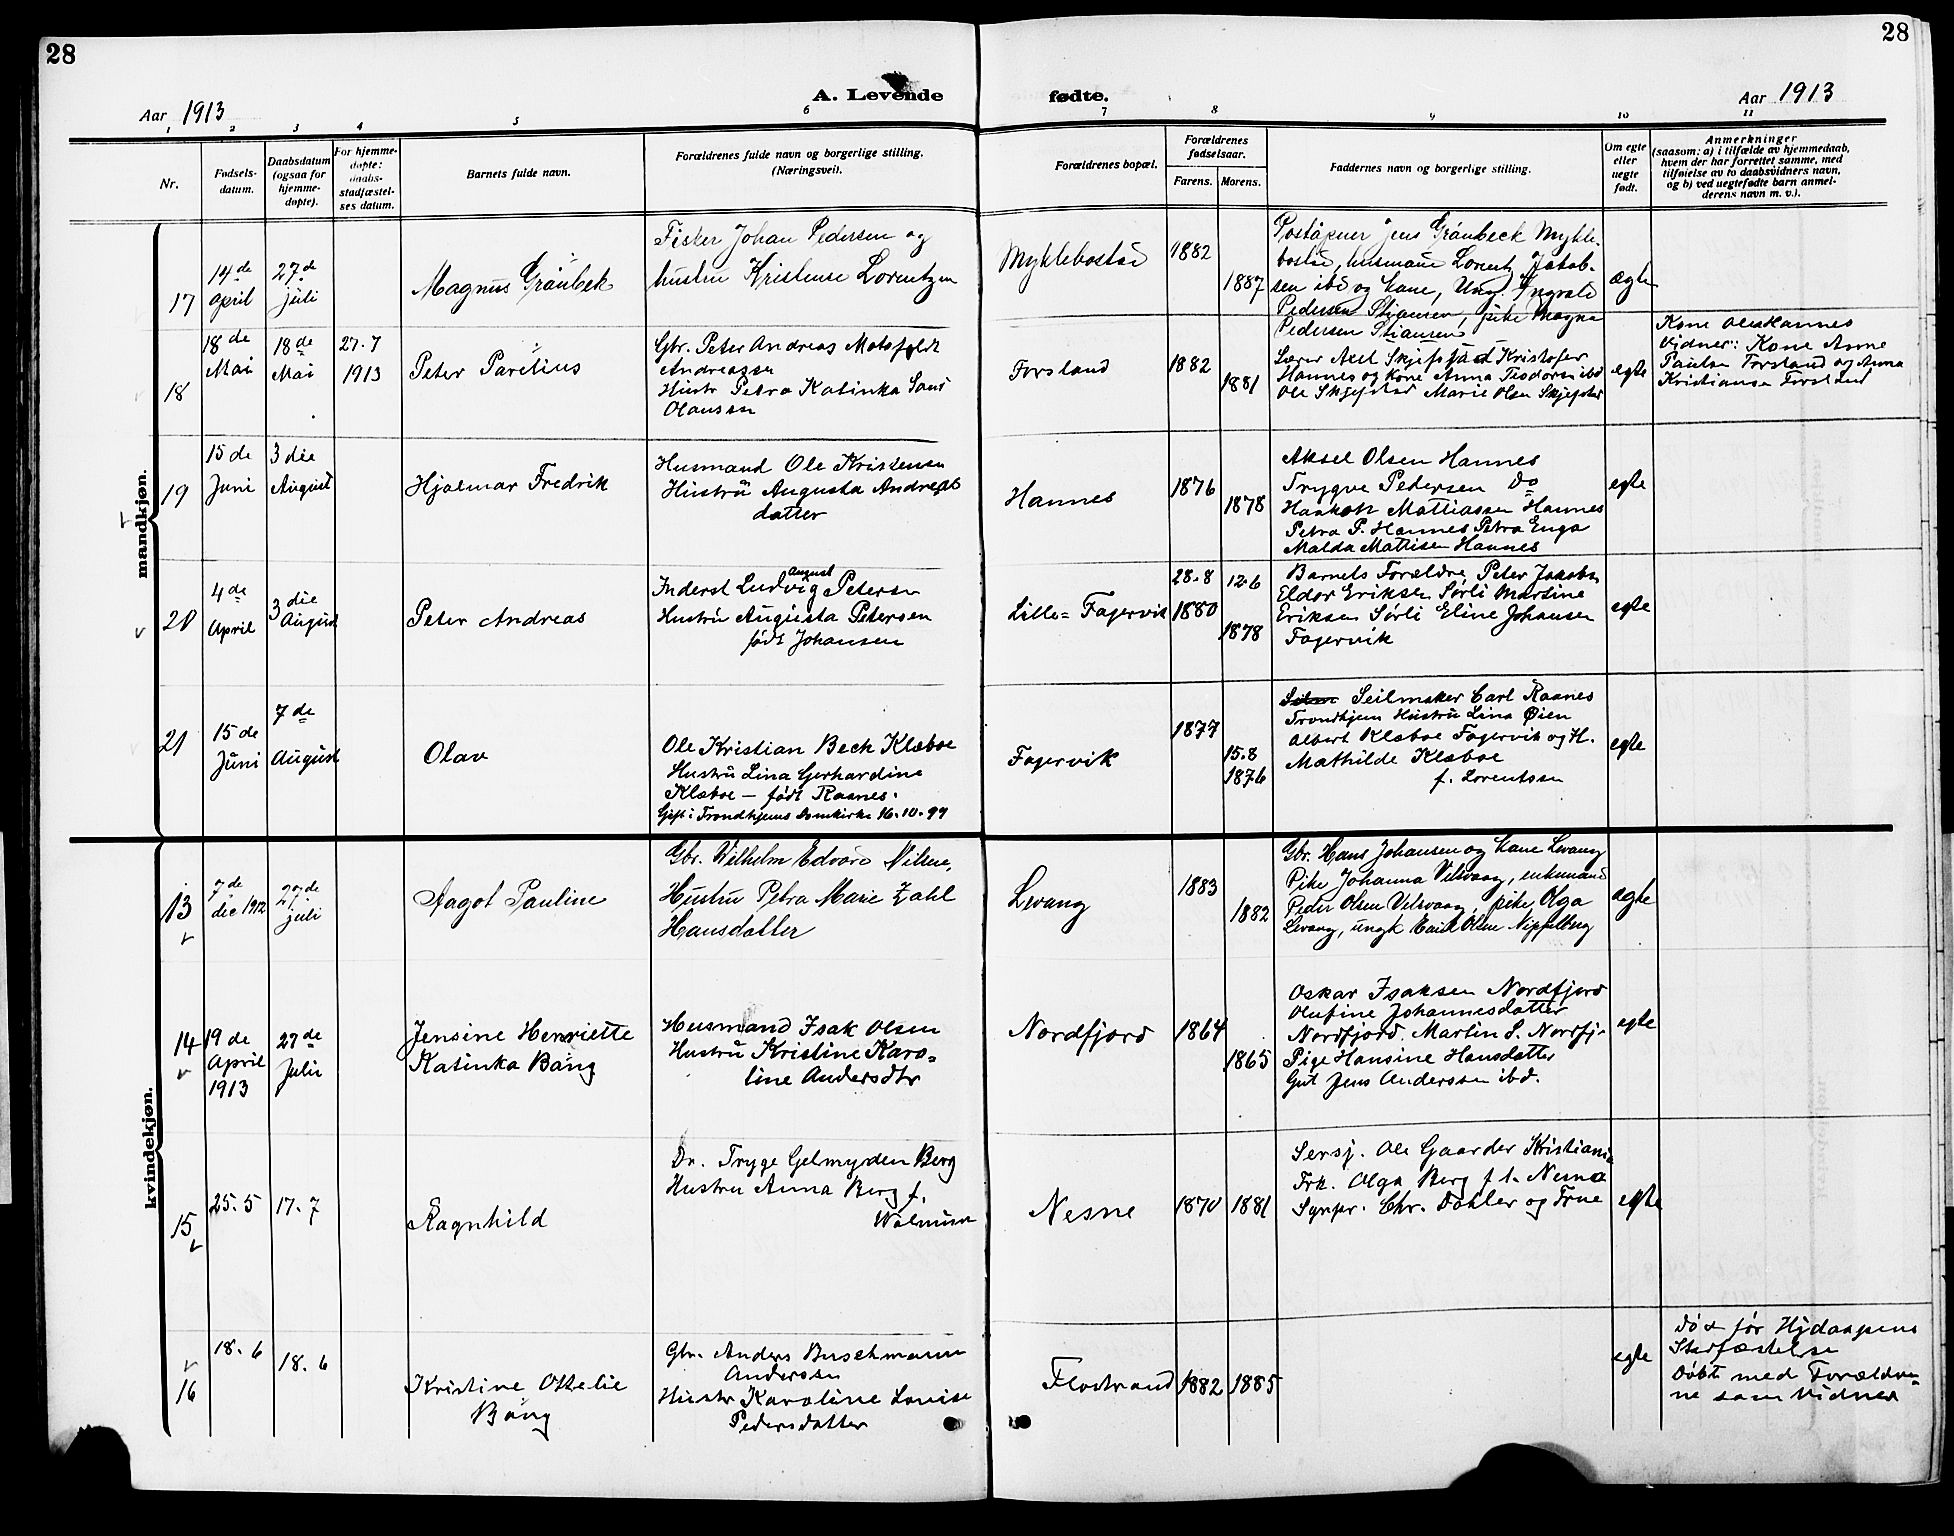 28
28
Aar 1913
A. Levende
fødte.
Aar 1913
1 2 3 4 5 6 7 8 9 10 11
Nr.
Fødsels-
datum.
Daabsdatum
(ogsaa for
hjemme-
døpte).
For hjemme-
døpte:
daabs-
stadfæstel-
ses datum.
Barnets fulde navn.
Forældrenes fulde navn og borgerlige stilling.
(Næringsvei).
Forældrenes bopæl.
Forældrenes
fødselsaar.
Farens. Morens.
Faddernes navn og borgerlige stilling.
Om egte
eller
uegte
født.
Anmerkninger
(saasom: a) i tilfælde av hjemmedaab,
hvem der har forrettet samme, med
tilføielse av to daabsvidners navn,
og b) ved uegtefødte barn anmel-
derens navn m. v.).
mandkjøn.
17
14de
april
27de
juli
Magnus Grønbek
Fisker Johan Pedersen og
hustru Kristense Lorentzen
Myklebostad
1882
1887
Postaapner Jens Grønbeck Mykle-
bostad, husmand Lorentz Jakob-
sen ibd og kone, Ung. Ingvald
Pedersen Stiansen, pike Magna
Pedersen Stiansen
ægte
18
18de
Mai
18de
Mai
27.7
1913
Peter Parelius
Gbr. Peter Andreas Motsfeldt
Andreassen
Hustr Petra Katinka
Olaussen
Forsland
1882
1881
Lærer Axel Skjefstad Kristofer
Hannes og Kone Anna Teodorsen ibd
Ole Skjefstad Marie Olsen Skjefstad
egte
Kone Hannes
Vidner: Kone Anne
Paulsen Forsland og Anna
Kristiansen Forsland
19
15de
Juni
3die
August
Hjalmar Fredrik
Husmand Ole Kristensen
Hustru Augusta Andreas
datter
Hannes
1876
1878
Aksel Olsen Hannes
Trygve Pedersen Do
Haakon Mattiassen Hannes
Petra P. Hannes Petra Enga
Malda Mattisen Hannes
egte
20
4de
April
3die
August
Peter Andreas
Inderst Ludvig August Petersen
Hustru Augusta Petersen
født Johansen
Lille-Fagervik
28.8
1880
12.6
1878
Barnets Forældre Peter Jakobs
Eldor Eriksen Sørli Martine
Eriksen Sørli Eline Johansen
Fagervik
egte
21
15de
Juni
7de
August
Olav
Ole Kristian Bech Klæboe
Hustru Lina Gerhardine
Klæboe - født Raanes.
Gift i Trondhjems Domkirke 16.10.97
Fagervik
1877
15.8
1876
Seilmaker Carl Raanes
Trondhjem Hustru Lina Øien
Albert Klæboe Fagervik og H.
Mathilde Klæboe
f. Lorentsen
egte
kvindekjøn.
13
7de
dec 1912
27de
juli
Aagot Pauline
Gbr. Vilhelm Edvard Nilsen,
Hustru Petra Marie Zahl
Hansdatter
Levang
1883
1882
Gbr. Hans Johansen og kone Levang
Pike Johanna Velsvaag, enkemand
Peder Olsen Velsvaag, pike Olga
Levang, ungk Olsen
ægte
14
19de
April
1913
27de
Julii
Jensine Henriette
Katinka Bang
Husmand Isak Olsen
Hustru Kristine Karo-
line Andersdtr
Nordfjord
1864
1865
Oskar Isaksen Nordfjord
Olufine Johannesdatter
Nordfjord. Martin S. Nordfj.
Pige Hansine Hansdatter
Gut Jens Anderssen ibd.
egte
15
25.5
17.7
Ragnhild
Dr. Tryge Gelmyden Berg
Hustru Anna Berg f.
Nesne
1870
1881
Sersj. Ole Gaarder Kristiania
Frk. Olga Berg f. t. Nesna
Chr. Dahler og Frue
egte
16
18.6
18.6
Kristine Ottelie
Bang
Gbr. Anders Buschmann
Anderssen
Hustr Karoline Lovise
Pedersdatter
Flostrand
1882
1885
egte
Død før Hjdaapens
Stadfæstelse
Døbt med Forældre-
ne som Vidner